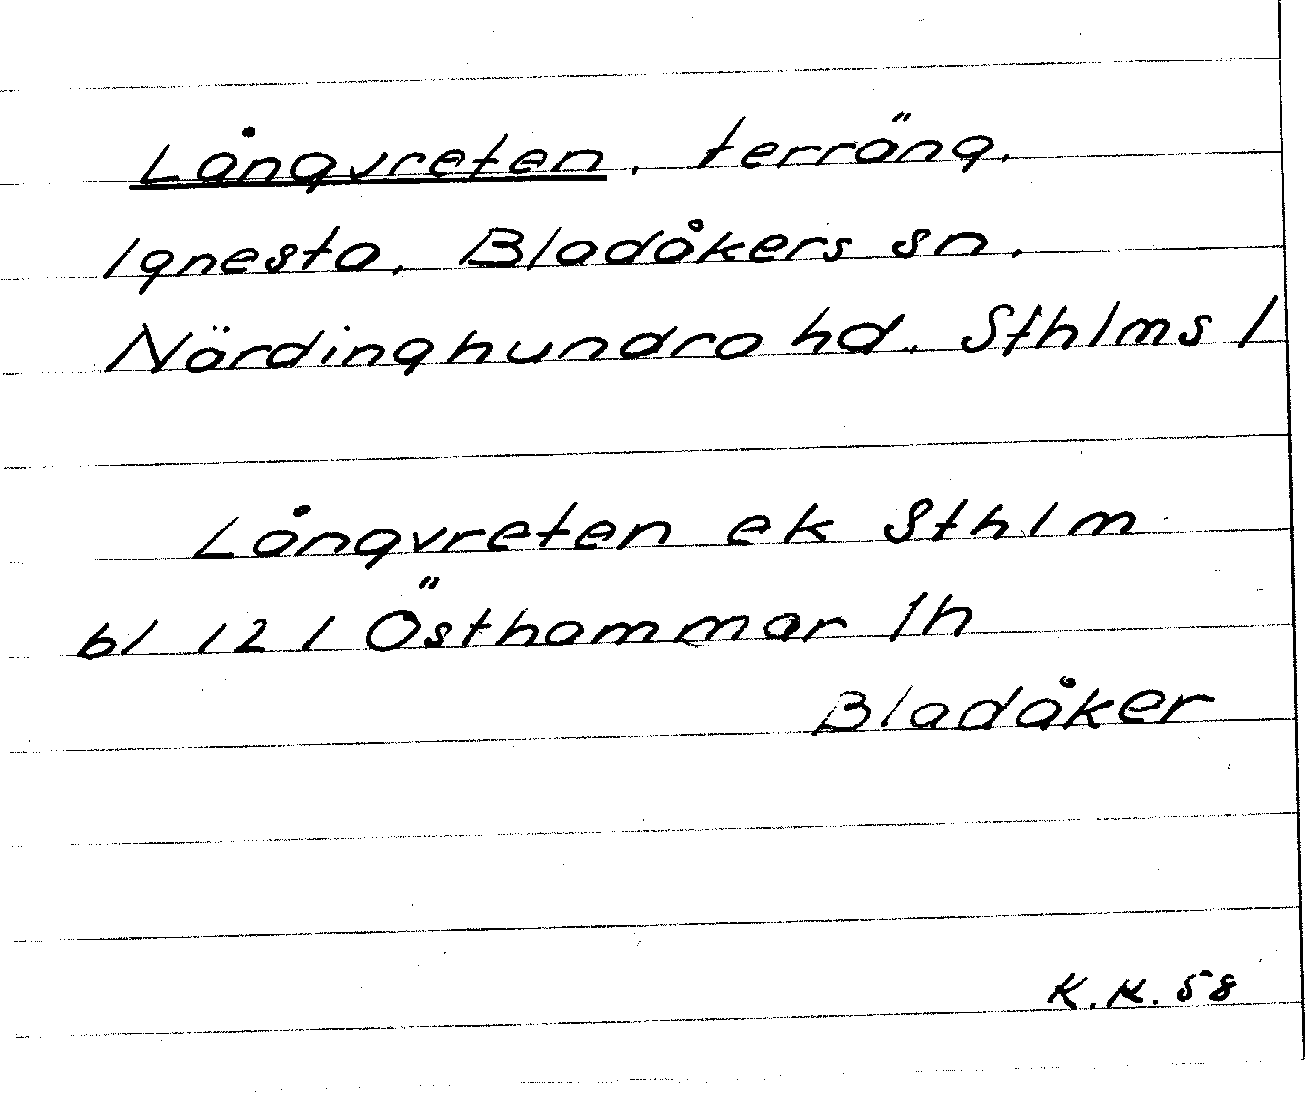 Långvreten, terräng,
Ignesta, Bladåkers sn,
Närdinghundra hd, Sthlms l
Långvreten ek Sthlm
bl 121 Östhammar lh
Bladåker
K.K. 58